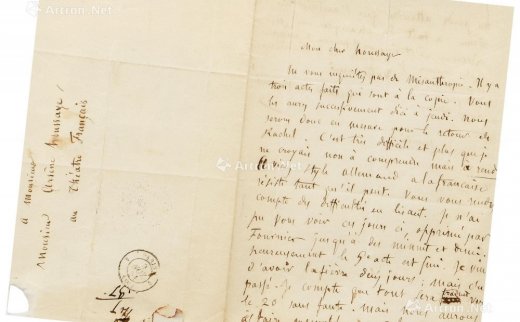 Mon cher houssaye
Ne vous inquiétez pas de Misanthropie. Il y a
trois actes faits qui sont à la copie. Vous
les aurez successivement d'ici à jeudi. Nous
serons donc en mesure pour le retour de
Rachel. C'est très difficile et plus que je
ne croyais non à comprendre mais à rendre
style allemand a la française
résiste tant qu'il peut. Vous vous rendrez
compte des difficultés en lisant. Je n'ai
pu vous voir ces jours ci opprimé par
Fournier jusqu'à des minuit et demi.
heureusement le 5e acte est fini. Je viens
d'avoir la fièvre deux jours, mais c'est
passé. Je compte que tout sera
le 20 sans faute mais nous aurons
à Monsieur
Monsieur Arsène houssaye,
au Théâtre Français
Artron.Net